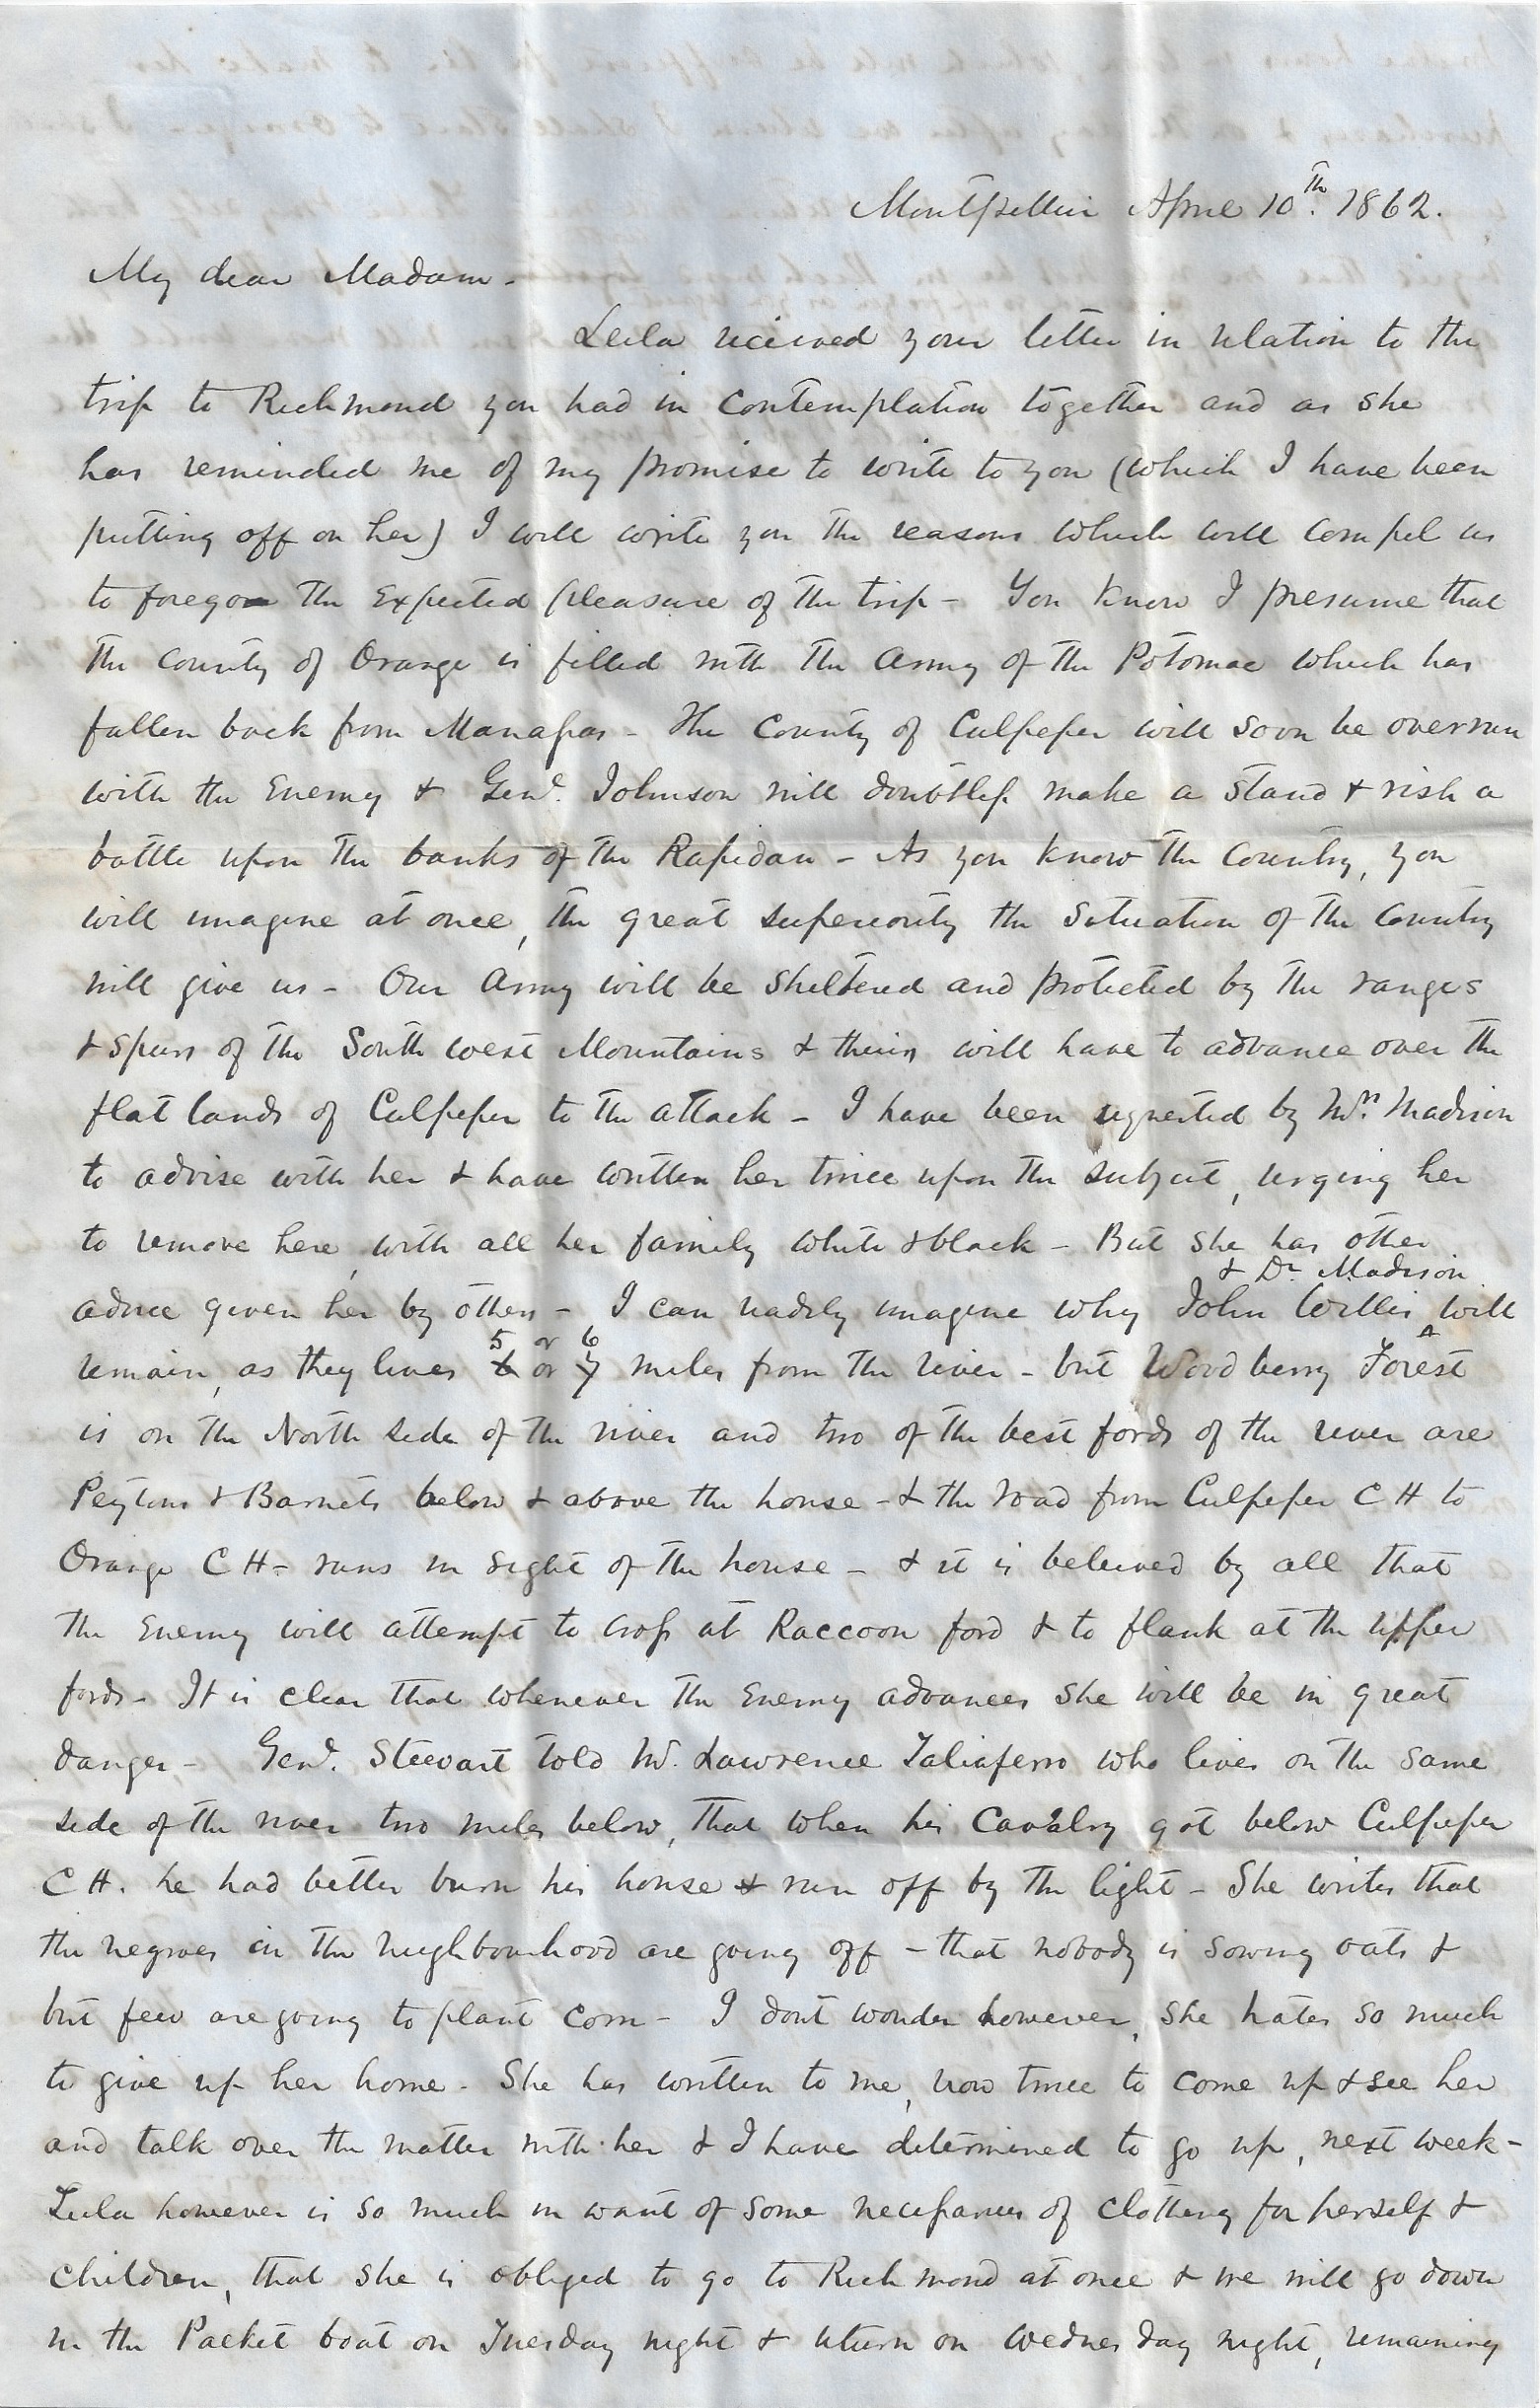 Montpellier April 10th. 1862.
My dear Madam -
Leila recieved your letter in relation to the
trip to Richmond you had in contemplation together and as she
has reminded me of my promise to write to you (which I have been
putting off on her) I will write you the reasons which will compel us
to forego the expected pleasure of the trip - You know I presume that
the County of Orange is filled with the Army of the Potomac which has
fallen back from Manassas - The County of Culpeper will soon be overrun
with the Enemy & Genl. Johnson will doubtless make a stand & risk a
battle upon the banks of the Rapidan - As you know the Country, you
will imagine at once, the great superiority the situation of the Country
will give us - Our Army will be sheltered and protected by the ranges
& spurs of the South west Mountains & theirs will have to advance over the
flat lands of Culpeper to the attack - I have been requested by Mrs. Madison
to advise with her & have written her twice upon the subject, urging her
to remove here, with all her family white & black - But she has other
& Dr. Madison
advice given her by others - I can readily imagine why John Willis will
5 or 6
remain, as they lives 6 or 7 miles from the river - but Wood berry Forest
is on the North side of the river and two of the best fords of the river are
Peytons & Barnets below & above the house - & the road from Culpeper C H to
Orange C H - runs in sight of the house - & it is beleived by all that
the Enemy will attempt to cross at Raccoon ford & to flank at the upper
fords - It is clear that whenever the Enemy advances she will be in great
danger - Genl. Stewart told Mr. Lawrence Taliaferro who lives on the same
side of the river two miles below, that when his Cavalry got below Culpeper
C H. he had better burn his house & run off by the light - She writes that
the negroes in the neighbourhood are going off - that nobody is sowing oats &
but few are going to plant corn - I dont wonder however, she hates so much
to give up her home - She has written to me, now twice to come up & see her
and talk over the matter with her & I have determined to go up, next week -
Leila however is so much in want of some necessaries of clothing for herself &
children, that she is obliged to go to Richmond at once & we will go down
in the Packet boat on Tuesday night & return on Wednesday night, remaining